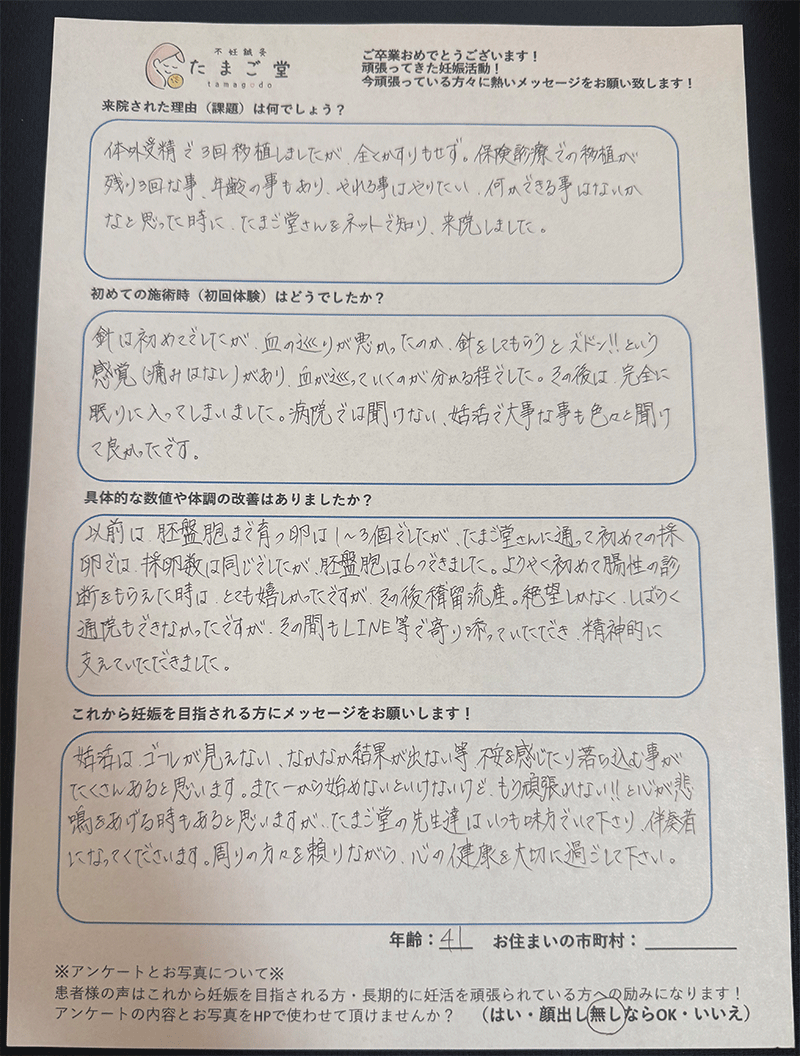 不妊鍼灸
たまご堂
tamagodo
ご卒業おめでとうございます！
頑張ってきた妊娠活動！
今頑張っている方々に熱いメッセージをお願い致します！
来院された理由（課題）は何でしょう？
体外受精で3回移植しましたが、全くかすりもせず。保険診療での移植が
残り3回な事、年齢の事もあり、やれる事はやりたい、何かできる事はないか
なと思った時に、たまご堂さんをネットで知り、来院しました。
初めての施術時（初回体験）はどうでしたか？
針は初めてでしたが、血の巡りが悪かったのか、針をしてもらうとズドン!!という
感覚（痛みはなし）があり、血が巡っていくのが分かる程でした。その後は、完全に
眠りに入ってしまいました。病院では聞けない、妊活で大事な事も色々と聞け
て良かったです。
具体的な数値や体調の改善はありましたか？
以前は、胚盤胞まで育つ卵は1〜3個でしたが、たまご堂さんに通って初めての採
卵では、採卵数は同じでしたが、胚盤胞は6つできました。ようやく初めて陽性の診
断をもらえた時は、とても嬉しかったですが、その後稽留流産。絶望しかなく、しばらく
通院もできなかったですが、その間もLINE等で寄り添っていただき、精神的に
支えていただきました。
これから妊娠を目指される方にメッセージをお願いします！
妊活は、ゴールが見えない、なかなか結果が出ない等、不安を感じたり落ち込む事が
たくさんあると思います。また一から始めないといけないけど、もう頑張れない!!と心が悲
鳴をあげる時もあると思いますが、たまご堂の先生達はいつも味方でいて下さり、伴奏者
になってくださいます。周りの方々を頼りながら、心の健康を大切に過ごして下さい。
年齢：41 お住まいの市町村：
※アンケートとお写真について※
患者様の声はこれから妊娠を目指される方・長期的に妊活を頑張られている方への励みになります！
アンケートの内容とお写真をHPで使わせて頂けませんか？ （はい・顔出し無しならOK・いいえ）